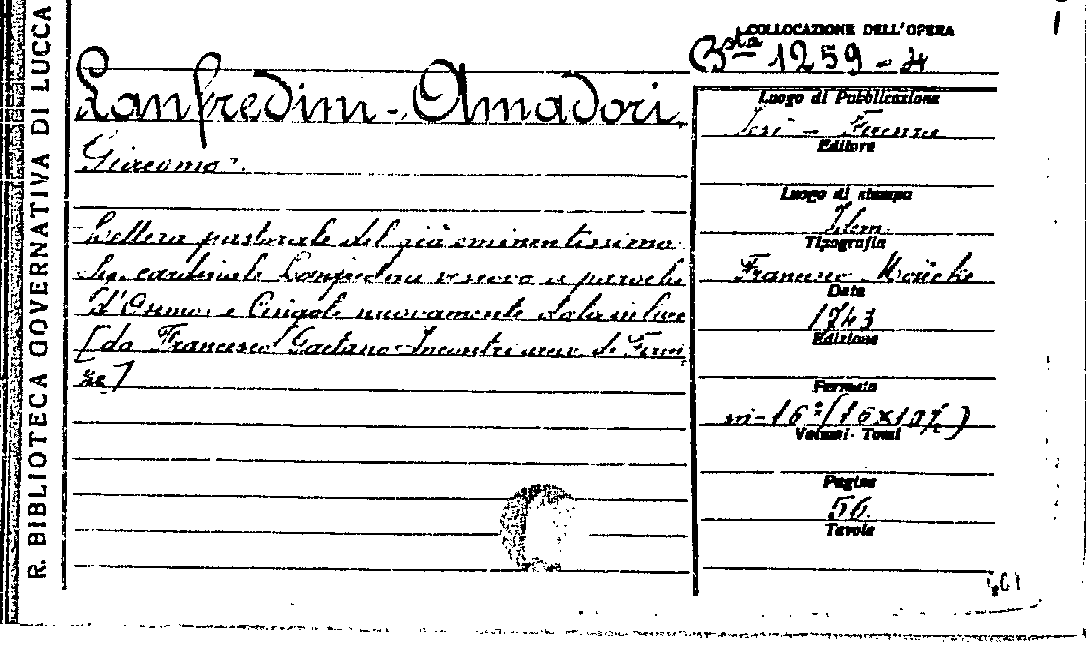 R. BIBLIOTECA GOVERNATIVA DI LUCCA
COLLOCAZIONE DELL'OPERA
Bsta 1259-4
Lanfredini-Amadori,
Giacomo.
Lettera pastorale del già eminentissimo
Sig. cardinale Lanfredini vescovo a parochi
d'Osimo e Cingoli nuovamente data in luce
[da Francesco Gaetano Incontri arciv. di Firen-
ze]
Luogo di Pubblicazione
Jesi - Firenze
Editore
Luogo di stampa
Idem
Tipografia
Francesco Moücke
Data
1743
Edizione
Formato
in-16° (16x10½)
Volumi - Tomi
Pagine
56
Tavole
401